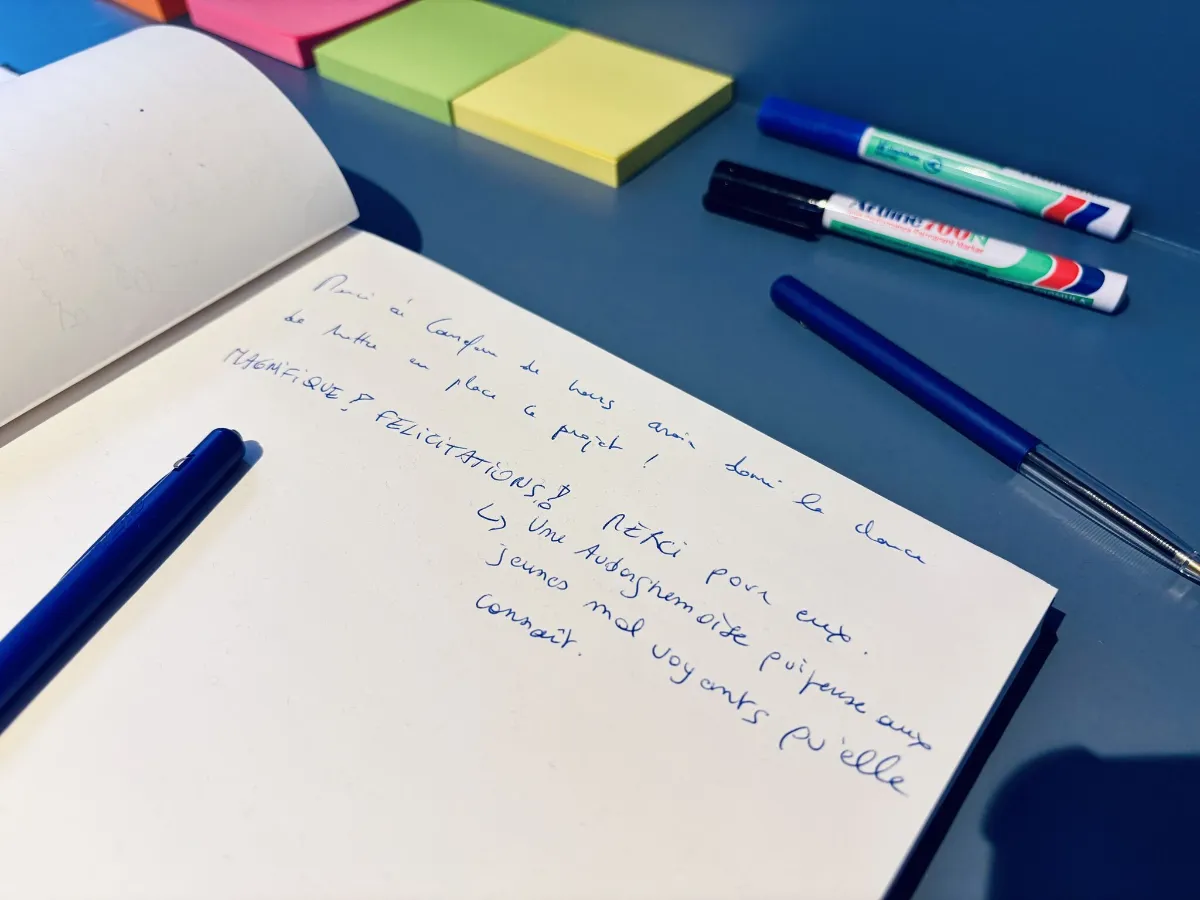 Merci à de nous avoir donné la chance
de mettre en place ce projet !
MAGNIFIQUE! FELICITATIONS! MERCI pour eux.
↳ Une Auderghemoise qui pense aux
jeunes mal voyants qu'elle
connaît.
Artline 700N
Permanent Marker